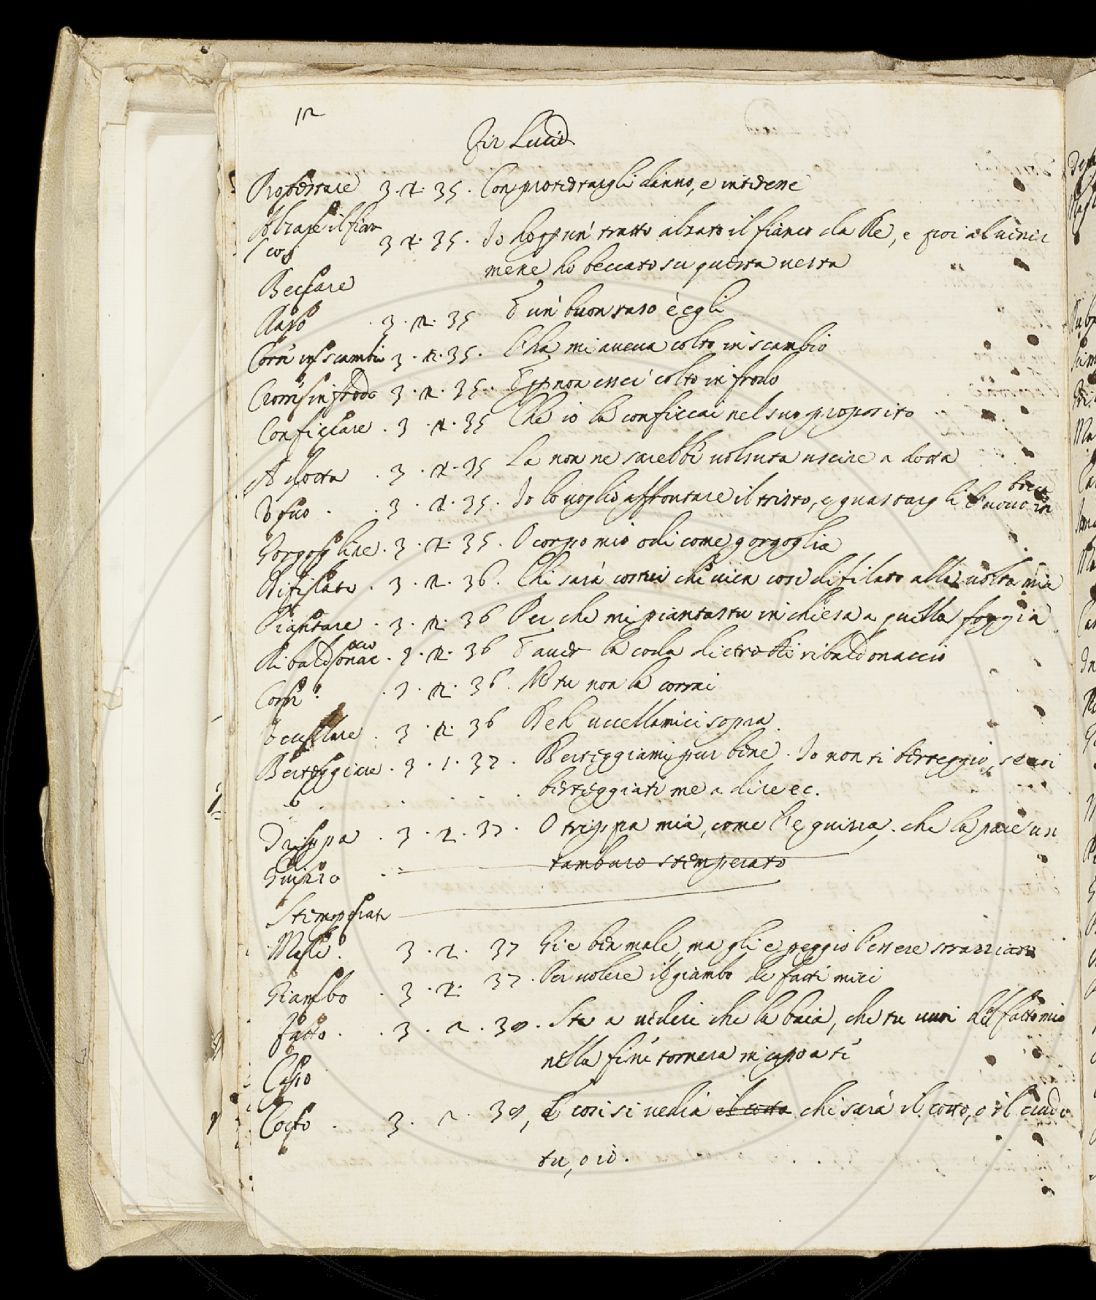 12
Fir Lucid
Profferrare 3 · 2 · 35 · Con profferargli danno, e intidene
Alzare il fian
co 3 · 2 · 35 · Io ho pur un tratto alzato il fianco da Re, e poi al uenir
mene ho beccato su questa uesta
Beccare
Raso · 3 · 2 · 35 E un buon raso è egli
Corre in scambio 3 · 2 · 35 · Ella mi aueua colto in scambio
Corre in frodo 3 · 2 · 35 · non ci colto in frodo
Conficcare · 3 · 2 · 35 Che io la conficcai nel suo proposito
A dotta · 3 · 2 · 35 La non ne sarebbe uoluta uscire a dotta
Vouo · · 3 · 2 · 35 · Io lo uoglio affrontare il tristo, e guastargli l'uouo in
bocca
Gorgogliare · 3 · 2 · 35 · O corpo mio odi come gorgoglia
Difilato · 3 · 2 · 36 · Chi sarà costui che uien così difilato alla uolta mia
Piantare · 3 · 2 · 36 Per che mi piantastu in chiesa a quella foggia
Ribaldonac
cio · 3 · 2 · 36 E auer la coda di cotesti ribaldonaccio
Corre · 3 · 2 · 36 · No tu non la corrai
Vccellare · 3 · 2 · 36 Beh uccellamici sopra
Berteggiare · 3 · 2 · 37 · Berteggiami pur bene · Io non ti berteggio, se uoi
berteggiati me a dire ec.
Trippa · 3 · 2 · 37 · O trippa mia, come l'è guisa che la pare un
tamburo stemperato
Guisa
Stemperato
Male · 3 · 2 · 37 Gli è ben male, ma gli è peggio l'essere straziato
Giambo · 3 · 2 · 37 · Per uolere il giambo de fatti miei
Fatto · 3 · 2 · 38 · Sta a uedere che la baia, che tu uuoi del fatto mio
nella fine tornera in capo a te
Capo
Cotto · 3 · 2 · 38, E così si uedrà il cotto chi sarà il cotto, o il crudo
tu, o io.